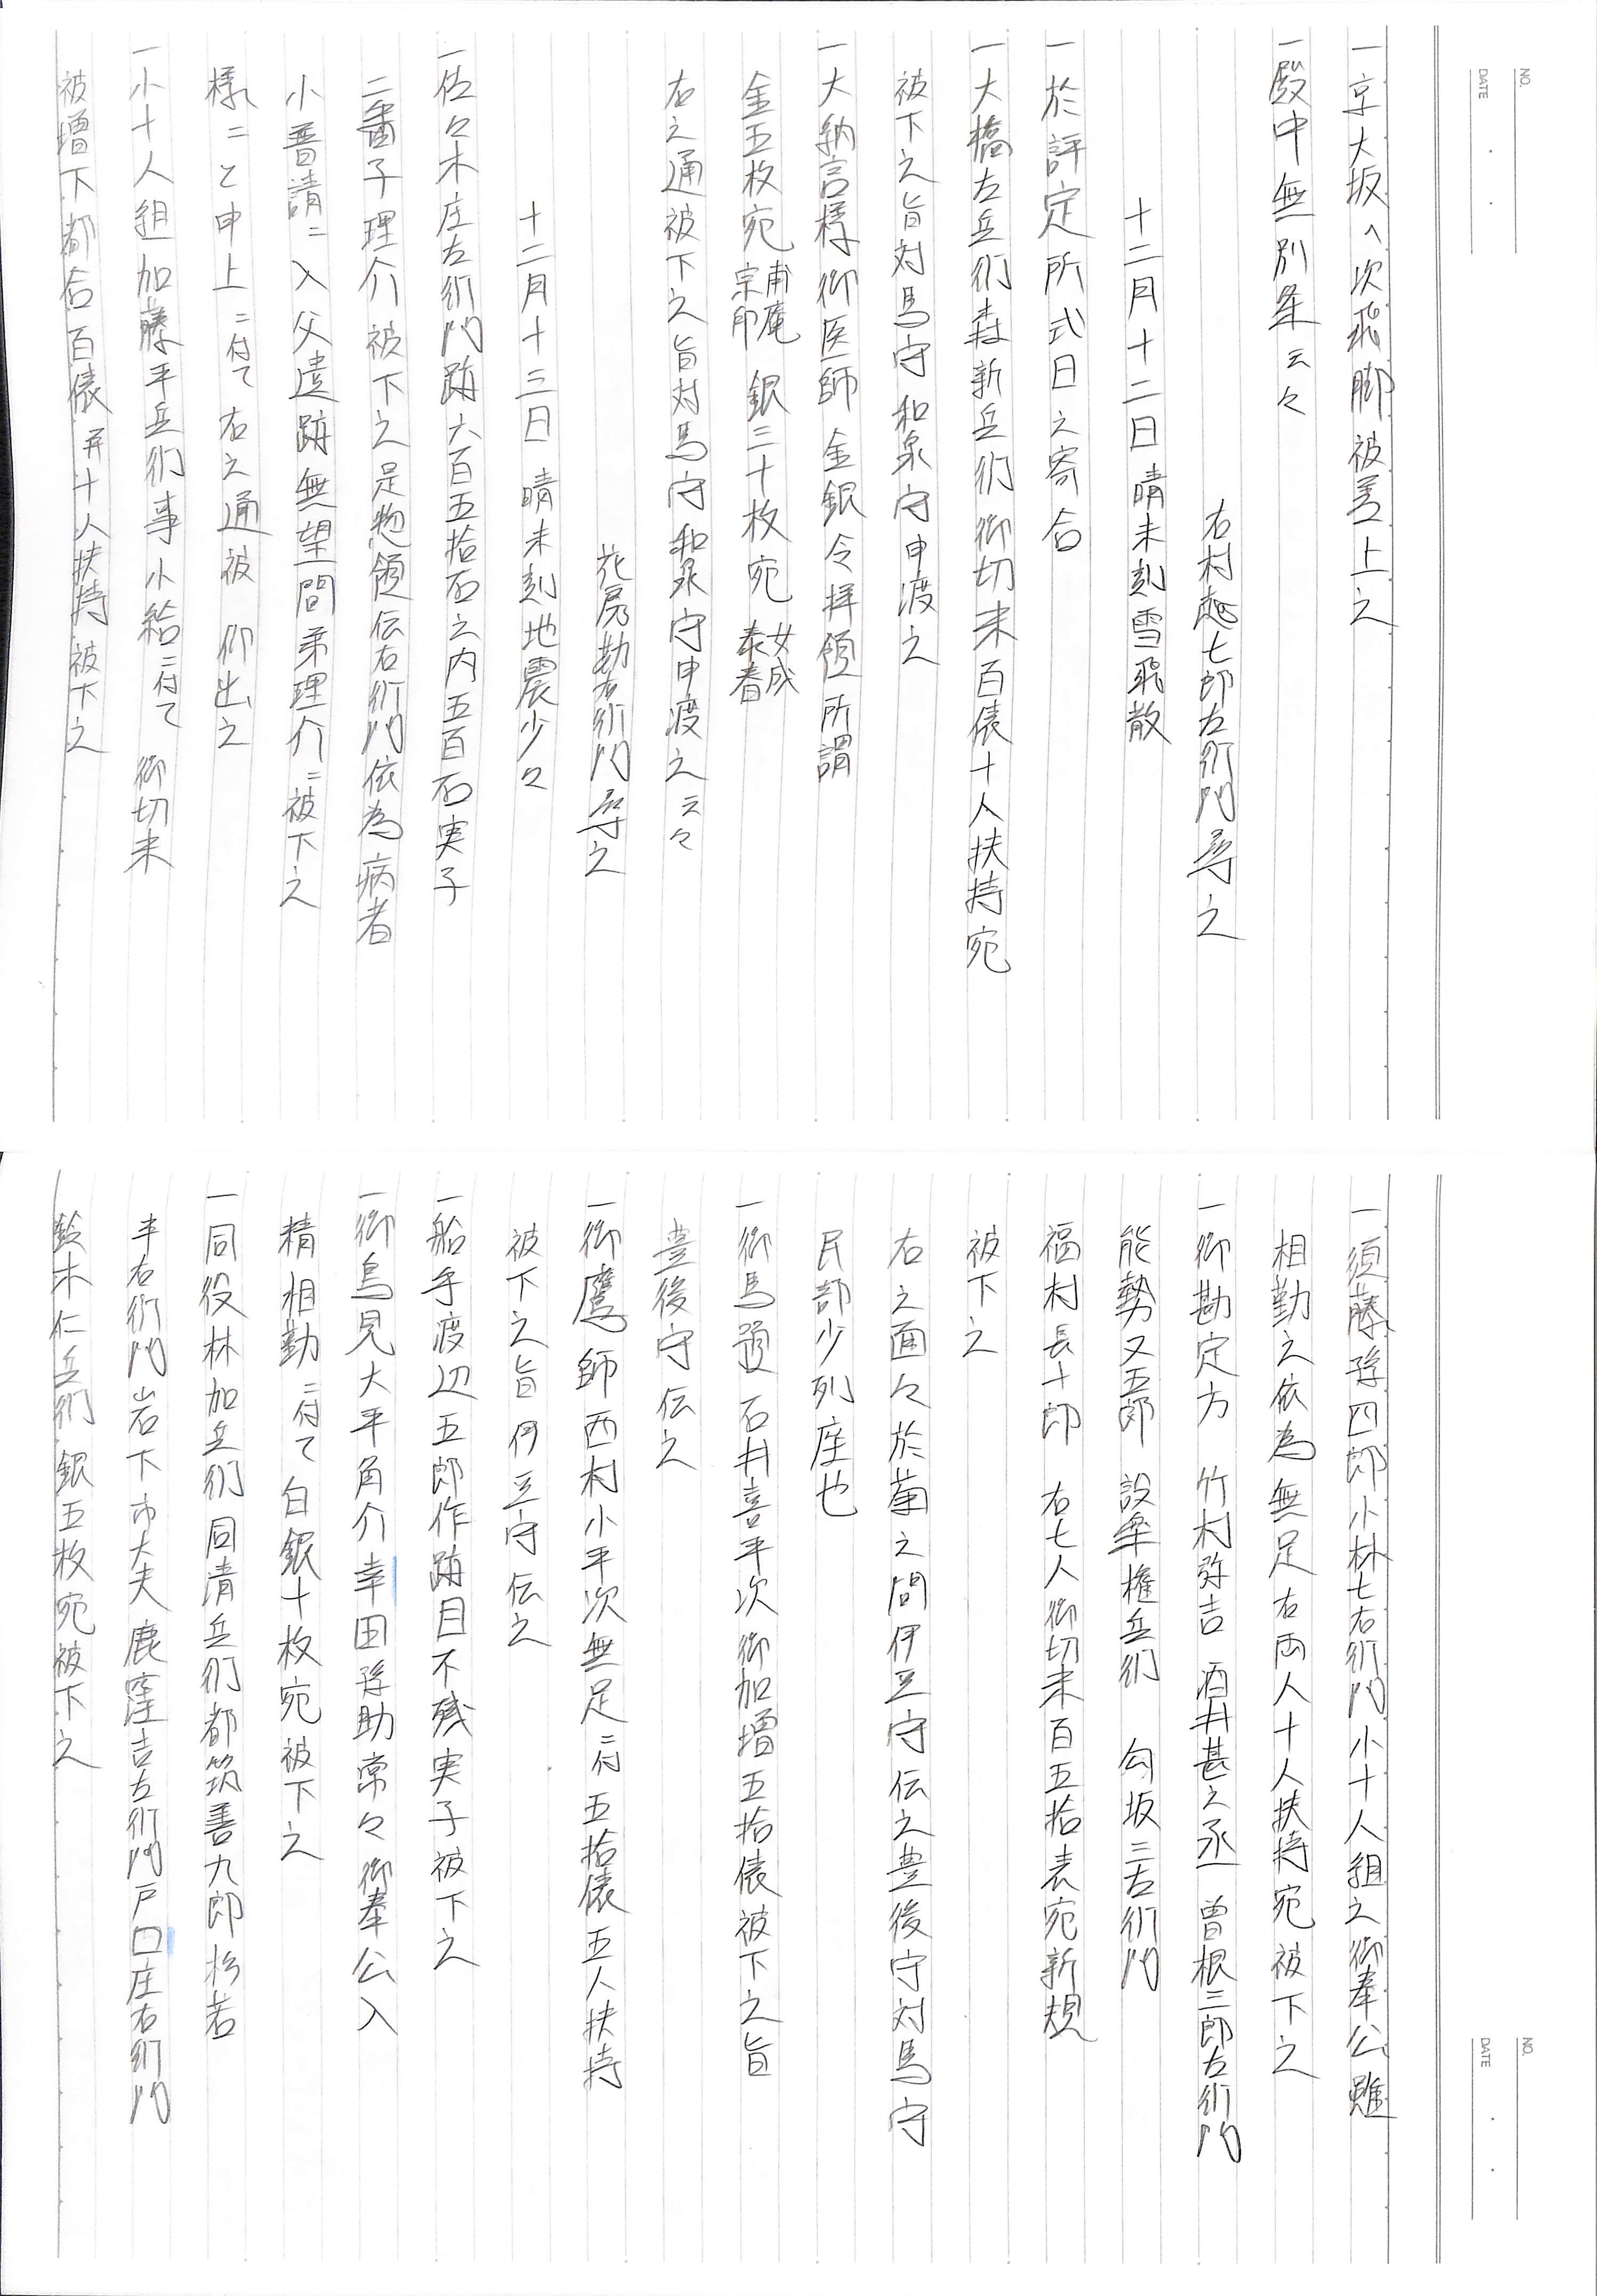 NO.
DATE
一京大坂へ次飛脚被差上之
一殿中無別条云々
右村越七郎左衛門尋之
十二月十二日晴未刻雪飛散
一於評定所式日之寄合
一大橋左兵衛森新兵衛御切米百俵十人扶持宛
被下之旨対馬守和泉守申渡之
一大納言様御医師金銀令拝領所謂
金五枚宛甫庵宗印 銀三十枚宛女成泰春
右之通被下之旨対馬守和泉守申渡之云々
花房勘右衛門尋之
十二月十三日晴未刻地震少々
一佐々木庄左衛門跡六百五拾石之内五百石実子
二番子理介被下之是惣領伝右衛門依為病者
小普請ニ入父遺跡無望間弟理介ニ被下之
様ニと申上ニ付て右之通被 仰出之
一小十人組加藤平兵衛事小給ニ付て 御切米
被増下都合百俵并十人扶持被下之
一須藤孫四郎小林七右衛門小十人組之御奉公雖
相勤之依為無足右両人十人扶持宛被下之
一御勘定方 竹村弥吉 酒井甚之丞 曽根三郎左衛門
能勢又五郎 設楽権兵衛 勾坂三右衛門
福村長十郎 右七人御切米百五拾表宛新規
被下之
右之面々於菊之間伊豆守伝之豊後守対馬守
民部少列座也
一御馬預石井喜平次御加増五拾俵被下之旨
豊後守伝之
一御鷹師西村小平次無足ニ付五拾俵五人扶持
被下之旨伊豆守伝之
一船手渡辺五郎作跡目不残実子被下之
一御鳥見大平角介幸田孫助常々御奉公入
精相勤ニ付て白銀十枚宛被下之
一同役林加兵衛同清兵衛都筑善九郎杉若
半右衛門岩下市大夫鹿窪吉左衛門戸口庄右衛門
鈴木仁兵衛銀五枚宛被下之
NO.
DATE